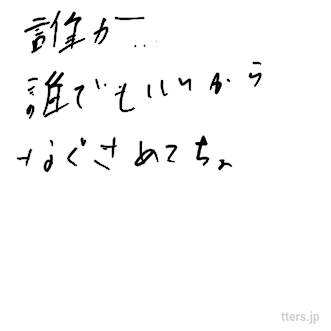 誰か...
誰でもいいから
なぐさめてちょ
tters.jp